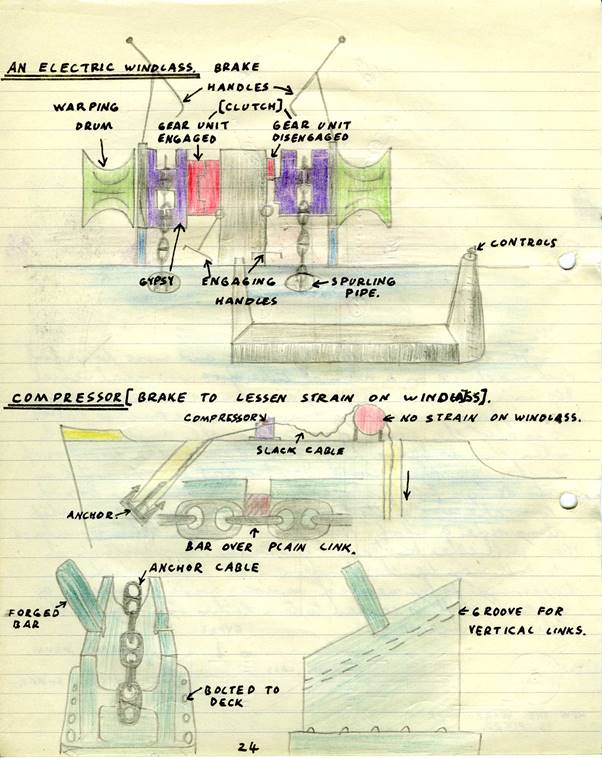 AN ELECTRIC WINDLASS. BRAKE
HANDLES
[CLUTCH]
WARPING
DRUM
GEAR UNIT
ENGAGED
GEAR UNIT
DISENGAGED
CONTROLS
GYPSY
ENGAGING
HANDLES
SPURLING
PIPE.
COMPRESSOR [BRAKE TO LESSEN STRAIN ON WINDLASS].
COMPRESSOR
NO STRAIN ON WINDLASS.
SLACK CABLE
ANCHOR.
BAR OVER PLAIN LINK.
ANCHOR CABLE
FORGED
BAR
GROOVE FOR
VERTICAL LINKS.
BOLTED TO
DECK
24